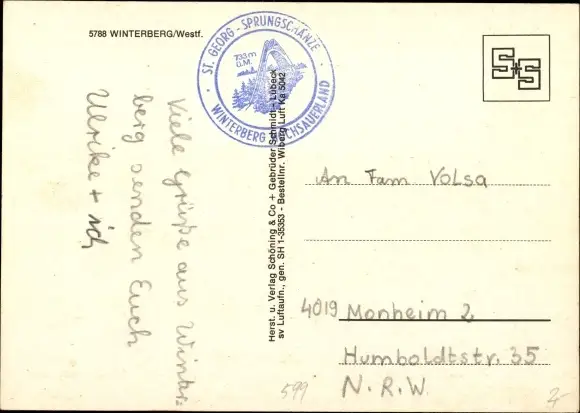 5788 WINTERBERG/Westf.
ST. GEORG-SPRUNGSCHANZE
733 m
ü.M.
WINTERBERG HOCHSAUERLAND
S+S
Viele Grüße aus Winter-
berg senden Euch
Ulrike + ich
Herst. u. Verlag Schöning & Co + Gebrüder Schmidt - Lübeck
sv Luftaufn., gen. SH 1-35353 - Bestellnr. Wiberg Luft Ka 5042
An Fam Volsa
4019 Monheim 2
Humboldtstr. 35
N.R.W.
599
2,-